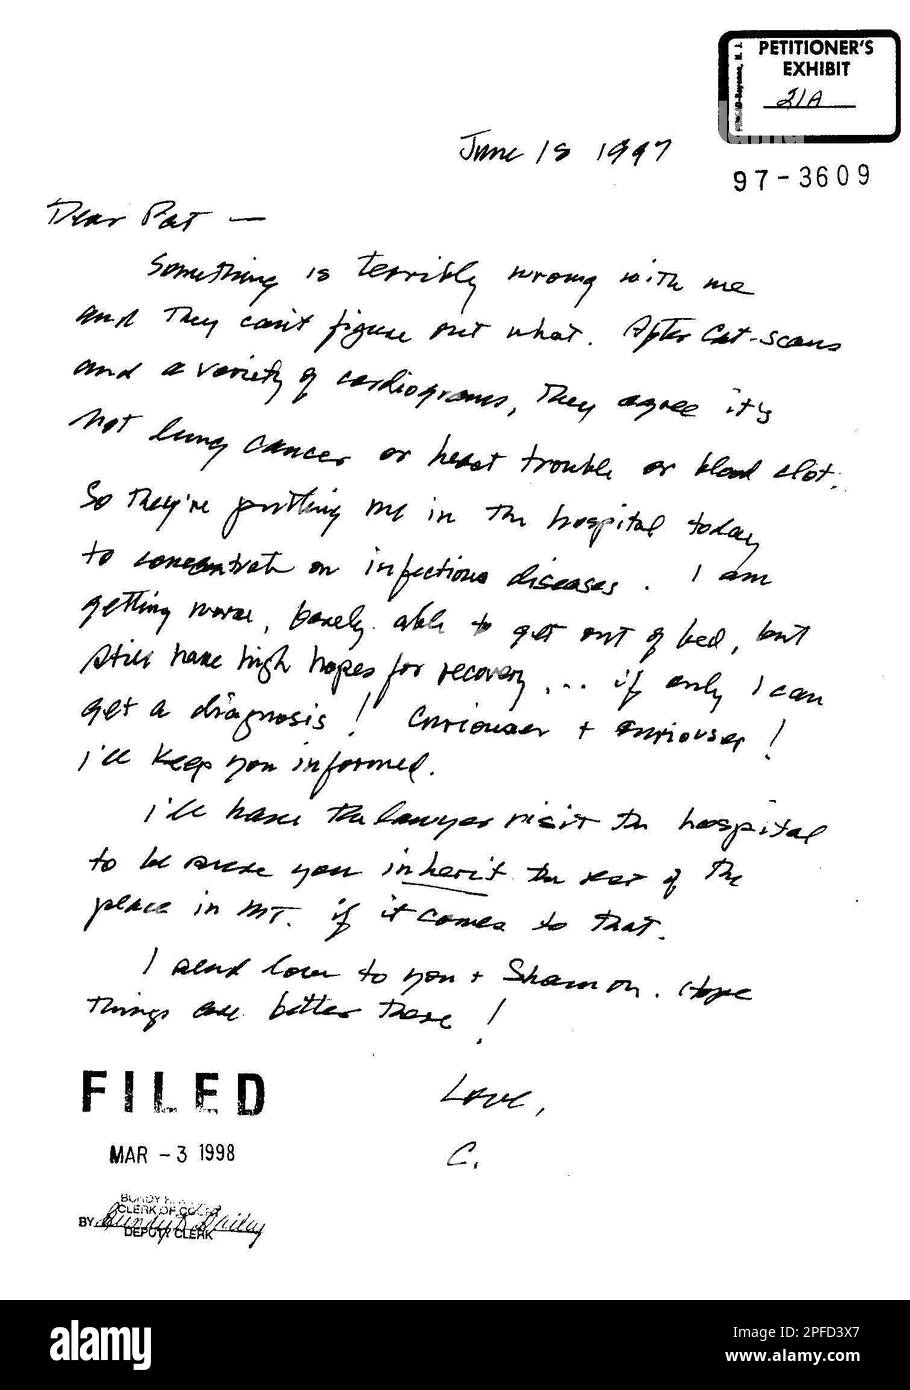 PETITIONER'S
EXHIBIT
21A
97-3609
June 18 1997
Dear Pat —
Something is terribly wrong with me
and they can't figure out what. After Cat-scans
and a variety of cardiograms, they agree it's
not lung cancer or heart trouble or blood clot.
So they're putting me in the hospital today
to concentrate on infectious diseases. I am
getting worse, barely able to get out of bed, but
still have high hopes for recovery ... if only I can
get a diagnosis! Curiouser + curiouser!
I'll keep you informed.
I'll have the lawyer visit the hospital
to be sure you inherit the rest of the
place in MT. if it comes to that.
I send love to you + Shannon. Hope
things are better there!
Love,
C.
FILED
MAR -3 1998
CLERK OF COURT
BY
DEPUTY CLERK
alamy
Image ID: 2PFD3X7
www.alamy.com